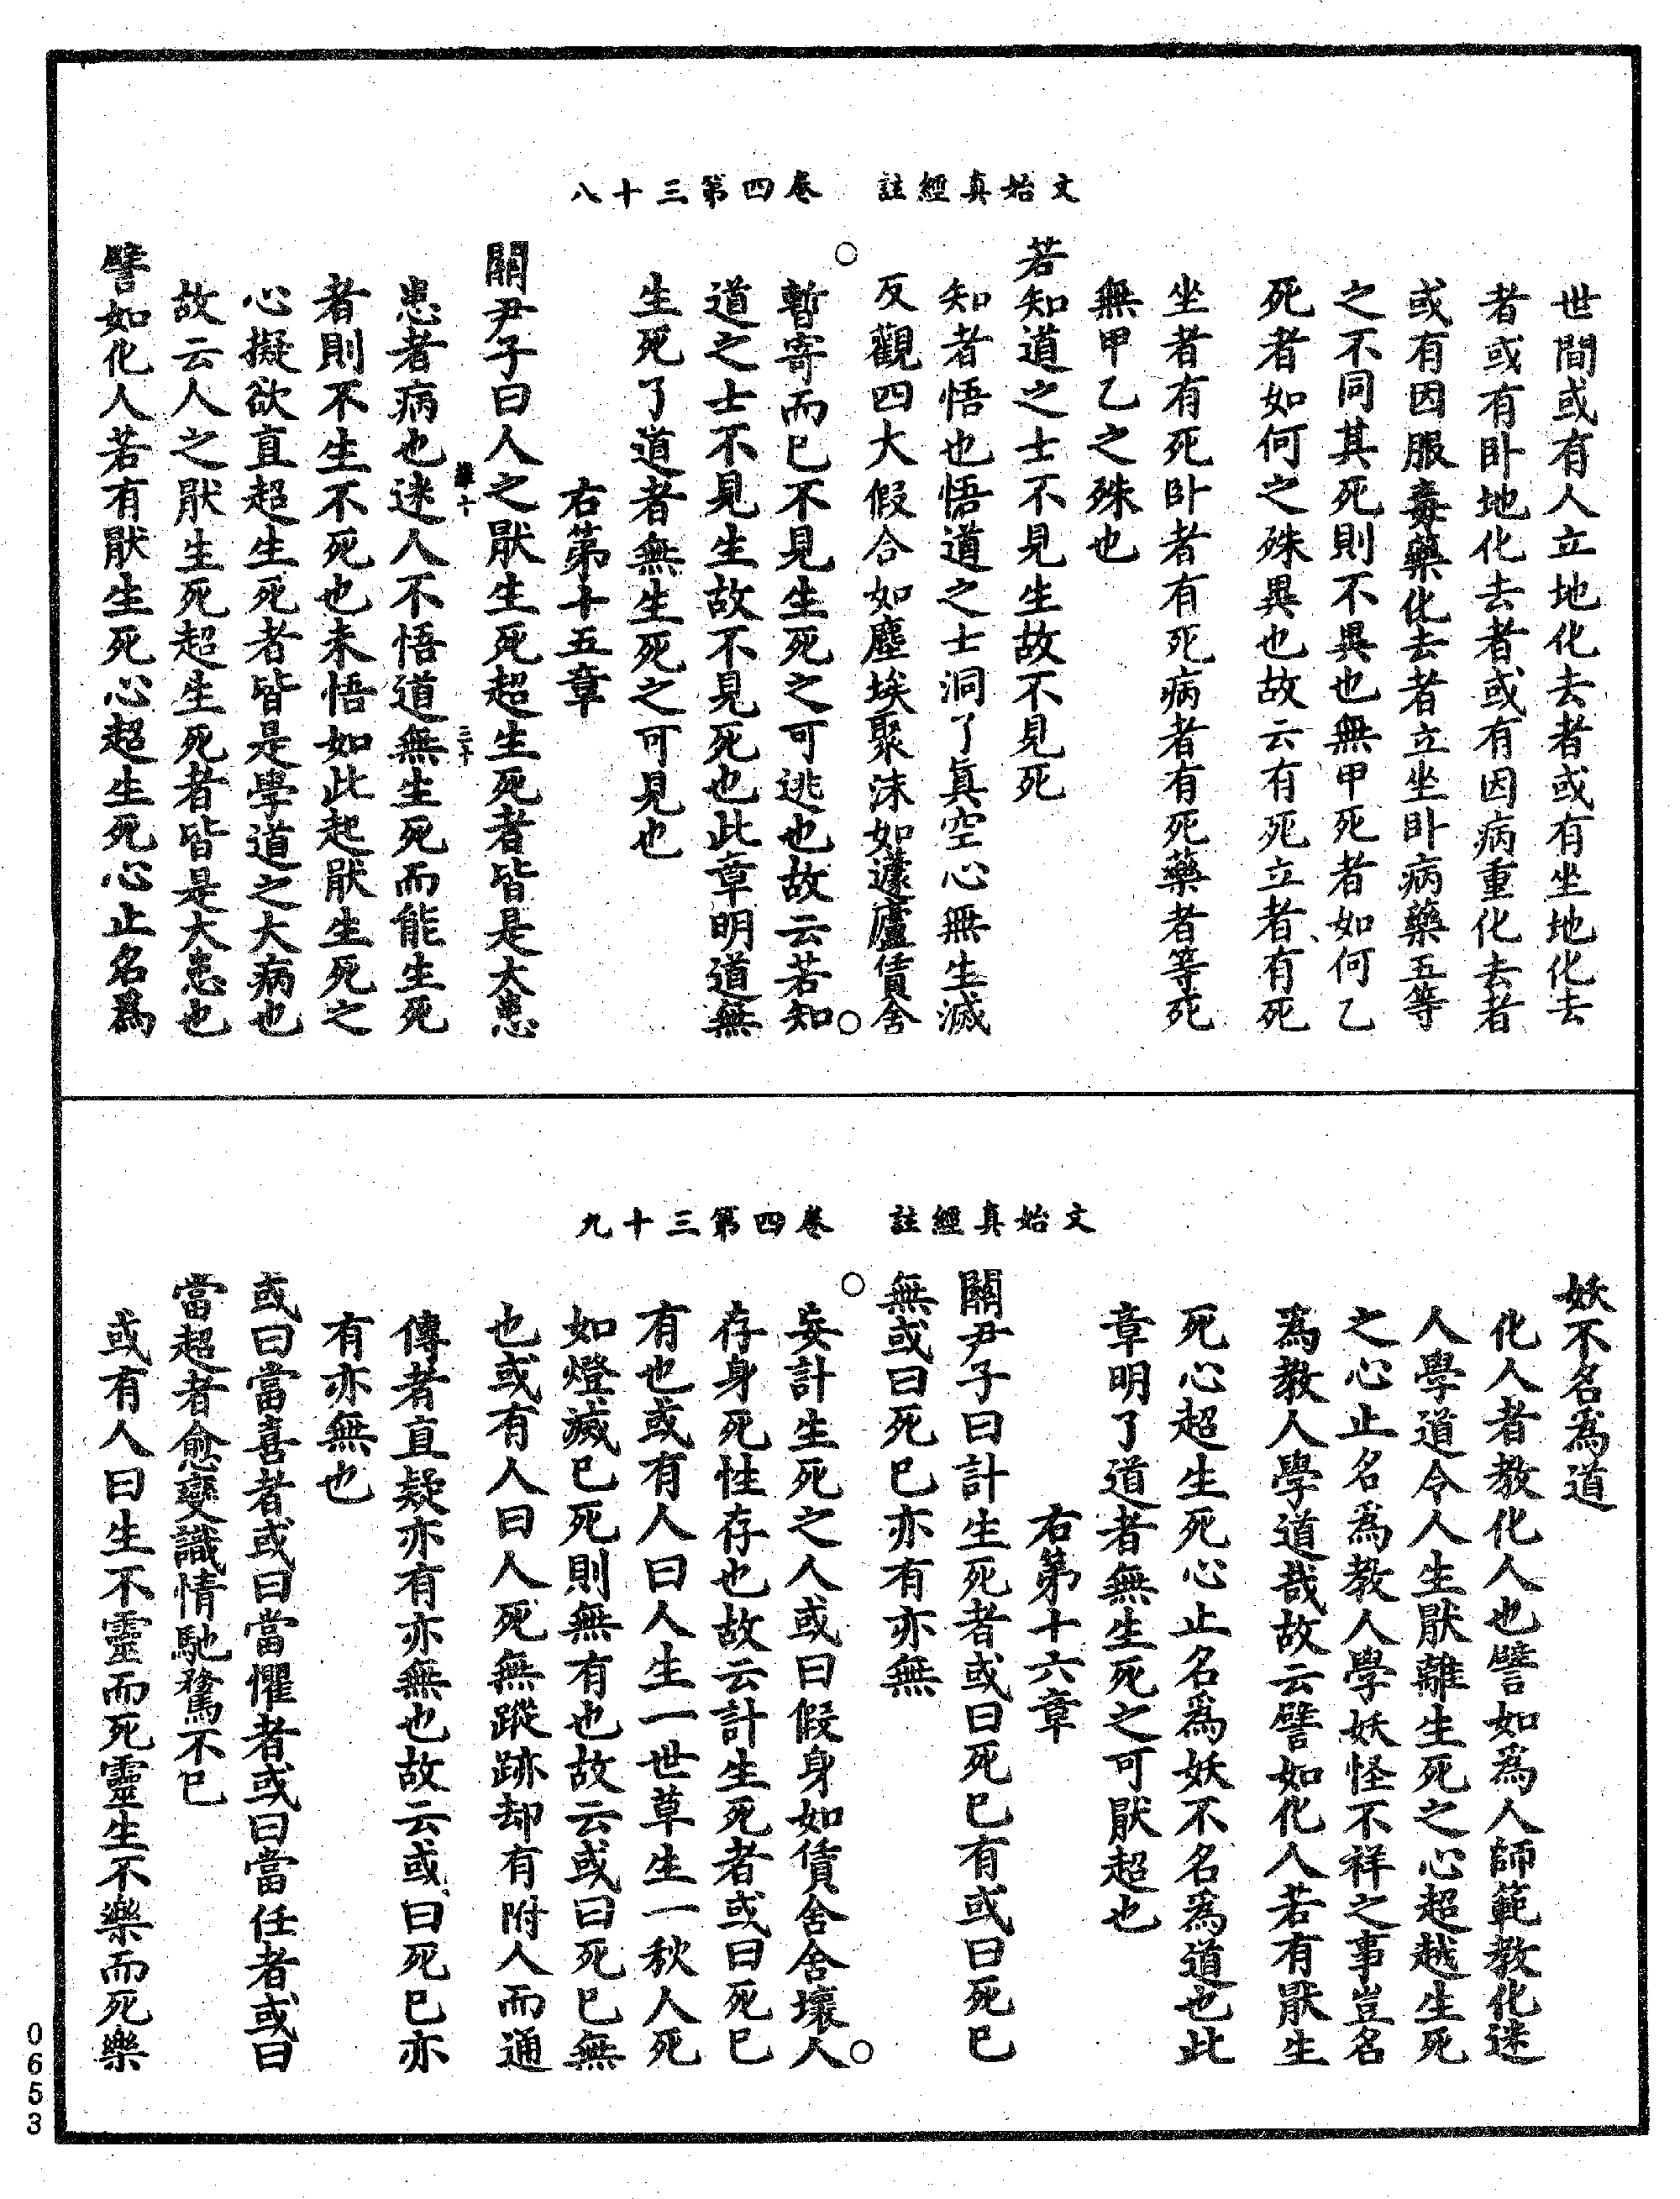 文始真經註　卷四第三十八
世間或有人立地化去者或有坐地化去
者或有卧地化去者或有因病重化去者
或有因服毒藥化去者立坐卧病藥五等
之不同其死則不異也無甲死者如何乙
死者如何之殊異也故云有死立者有死
坐者有死卧者有死病者有死藥者等死
無甲乙之殊也
若知道之士不見生故不見死
知者悟也悟道之士洞了真空心無生滅
反觀四大假合如塵埃聚沫如蘧廬賃舍
暫寄而已不見生死之可逃也故云若知
道之士不見生故不見死也此章明道無
生死了道者無生死之可見也
右第十五章
關尹子曰人之厭生死超生死者皆是大患
患者病也迷人不悟道無生死而能生死
者則不生不死也未悟如此起厭生死之
心擬欲直超生死者皆是學道之大病也
故云人之厭生死超生死者皆是大患也
譬如化人若有厭生死心超生死心止名爲
文始真經註　卷四第三十九
妖不名爲道
化人者教化人也譬如爲人師範教化迷
人學道令人生厭離生死之心超越生死
之心止名爲教人學妖怪不祥之事豈名
爲教人學道哉故云譬如化人若有厭生
死心超生死心止名爲妖不名爲道也此
章明了道者無生死之可厭超也
右第十六章
關尹子曰計生死者或曰死已有或曰死已
無或曰死已亦有亦無
妄計生死之人或曰假身如賃舍舍壞人
存身死性存也故云計生死者或曰死已
有也或有人曰人生一世草生一秋人死
如燈滅已死則無有也故云或曰死已無
也或有人曰人死無蹤跡却有附人而通
傳者直疑亦有亦無也故云或曰死已亦
有亦無也
或曰當喜者或曰當懼者或曰當任者或曰
當超者愈變識情馳騖不已
或有人曰生不靈而死靈生不樂而死樂
0653